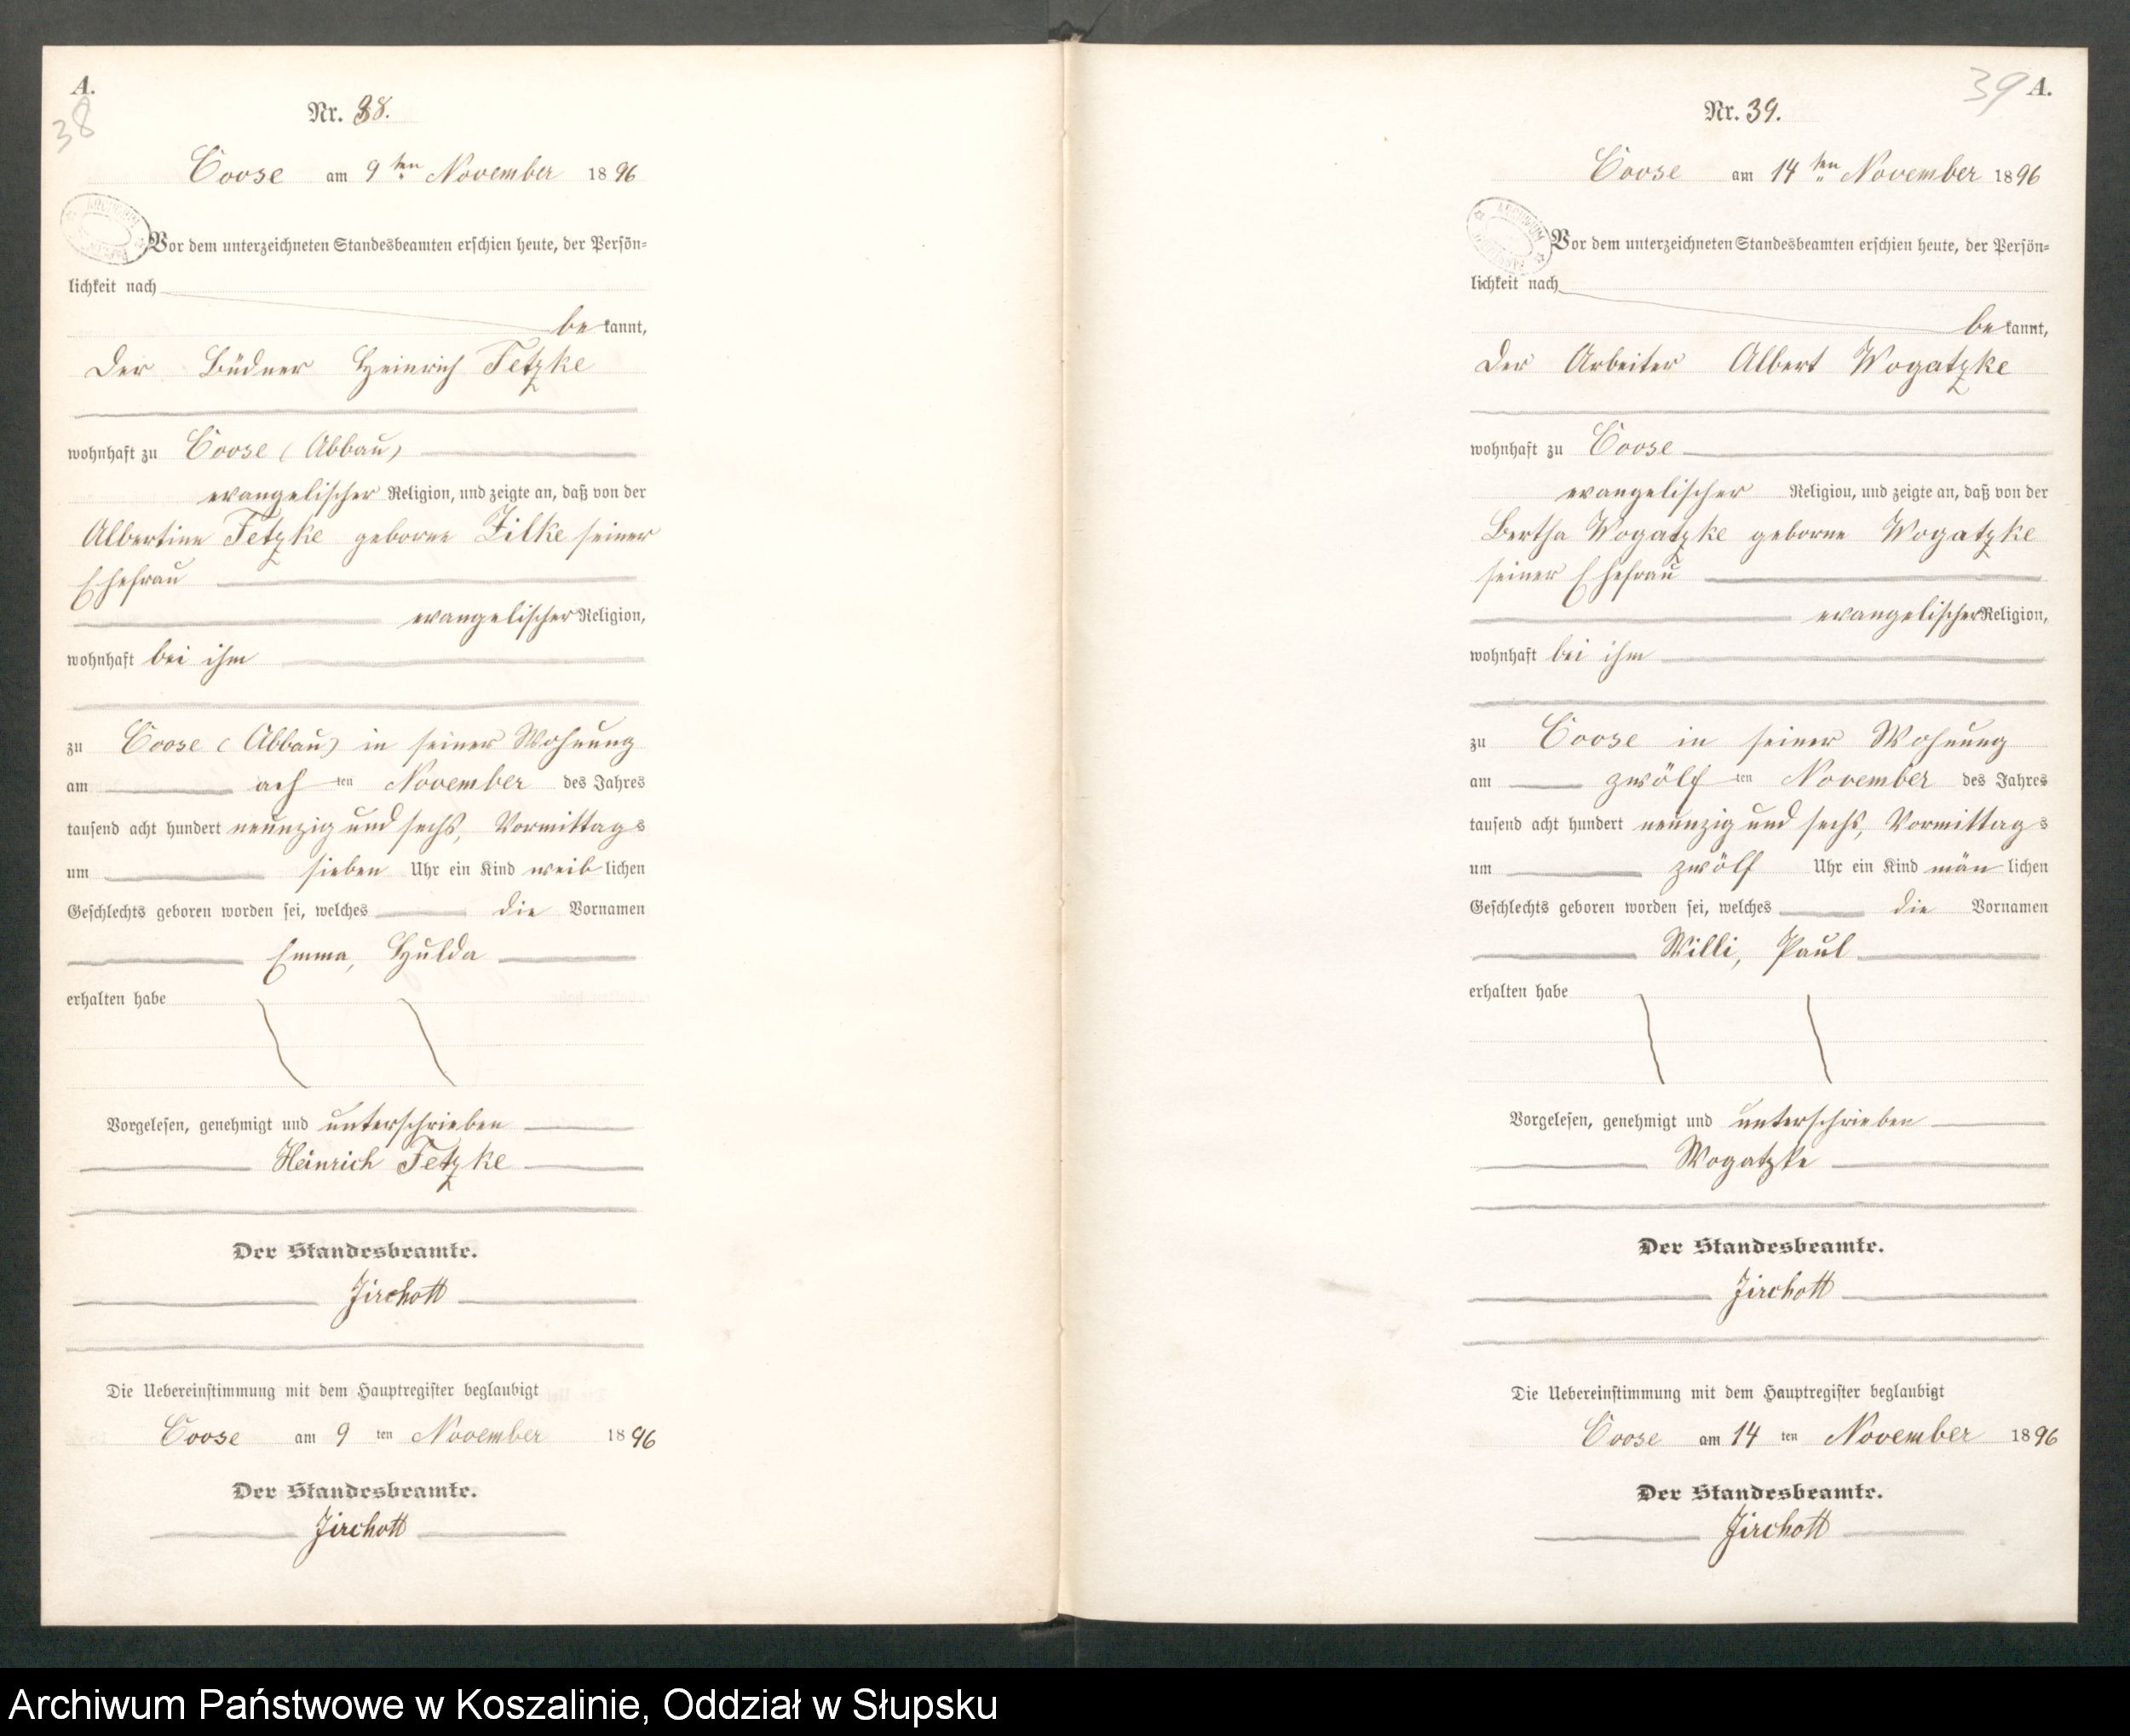 A.
38
Nr. 38.
Coose am 9ten November 1896
Vor dem unterzeichneten Standesbeamten erschien heute, der Persön=
lichkeit nach
bekannt,
der Büdner Heinrich Fetzke
wohnhaft zu Coose (Abbau)
evangelischer Religion, und zeigte an, daß von der
Albertine Fetzke geborne Zilke seiner
Ehefrau
evangelischer Religion,
wohnhaft bei ihm
zu Coose (Abbau) in seiner Wohnung
am achten November des Jahres
tausend acht hundert neunzig und sechs, Vormittags
um sieben Uhr ein Kind weiblichen
Geschlechts geboren worden sei, welches die Vornamen
Emma, Hulda
erhalten habe
Vorgelesen, genehmigt und unterschrieben
Heinrich Fetzke
Der Standesbeamte.
Jirchott
Die Uebereinstimmung mit dem Hauptregister beglaubigt
Coose am 9 ten November 1896
Der Standesbeamte.
Jirchott
39 A.
Nr. 39.
Coose am 14ten November 1896
Vor dem unterzeichneten Standesbeamten erschien heute, der Persön=
lichkeit nach
bekannt,
der Arbeiter Albert Wogatzke
wohnhaft zu Coose
evangelischer Religion, und zeigte an, daß von der
Bertha Wogatzke geborne Wogatzke
seiner Ehefrau
evangelischer Religion,
wohnhaft bei ihm
zu Coose in seiner Wohnung
am zwölften November des Jahres
tausend acht hundert neunzig und sechs, Vormittags
um zwölf Uhr ein Kind mänlichen
Geschlechts geboren worden sei, welches die Vornamen
Willi, Paul
erhalten habe
Vorgelesen, genehmigt und unterschrieben
Wogatzke
Der Standesbeamte.
Jirchott
Die Uebereinstimmung mit dem Hauptregister beglaubigt
Coose am 14 ten November 1896
Der Standesbeamte.
Jirchott
Archiwum Państwowe w Koszalinie, Oddział w Słupsku